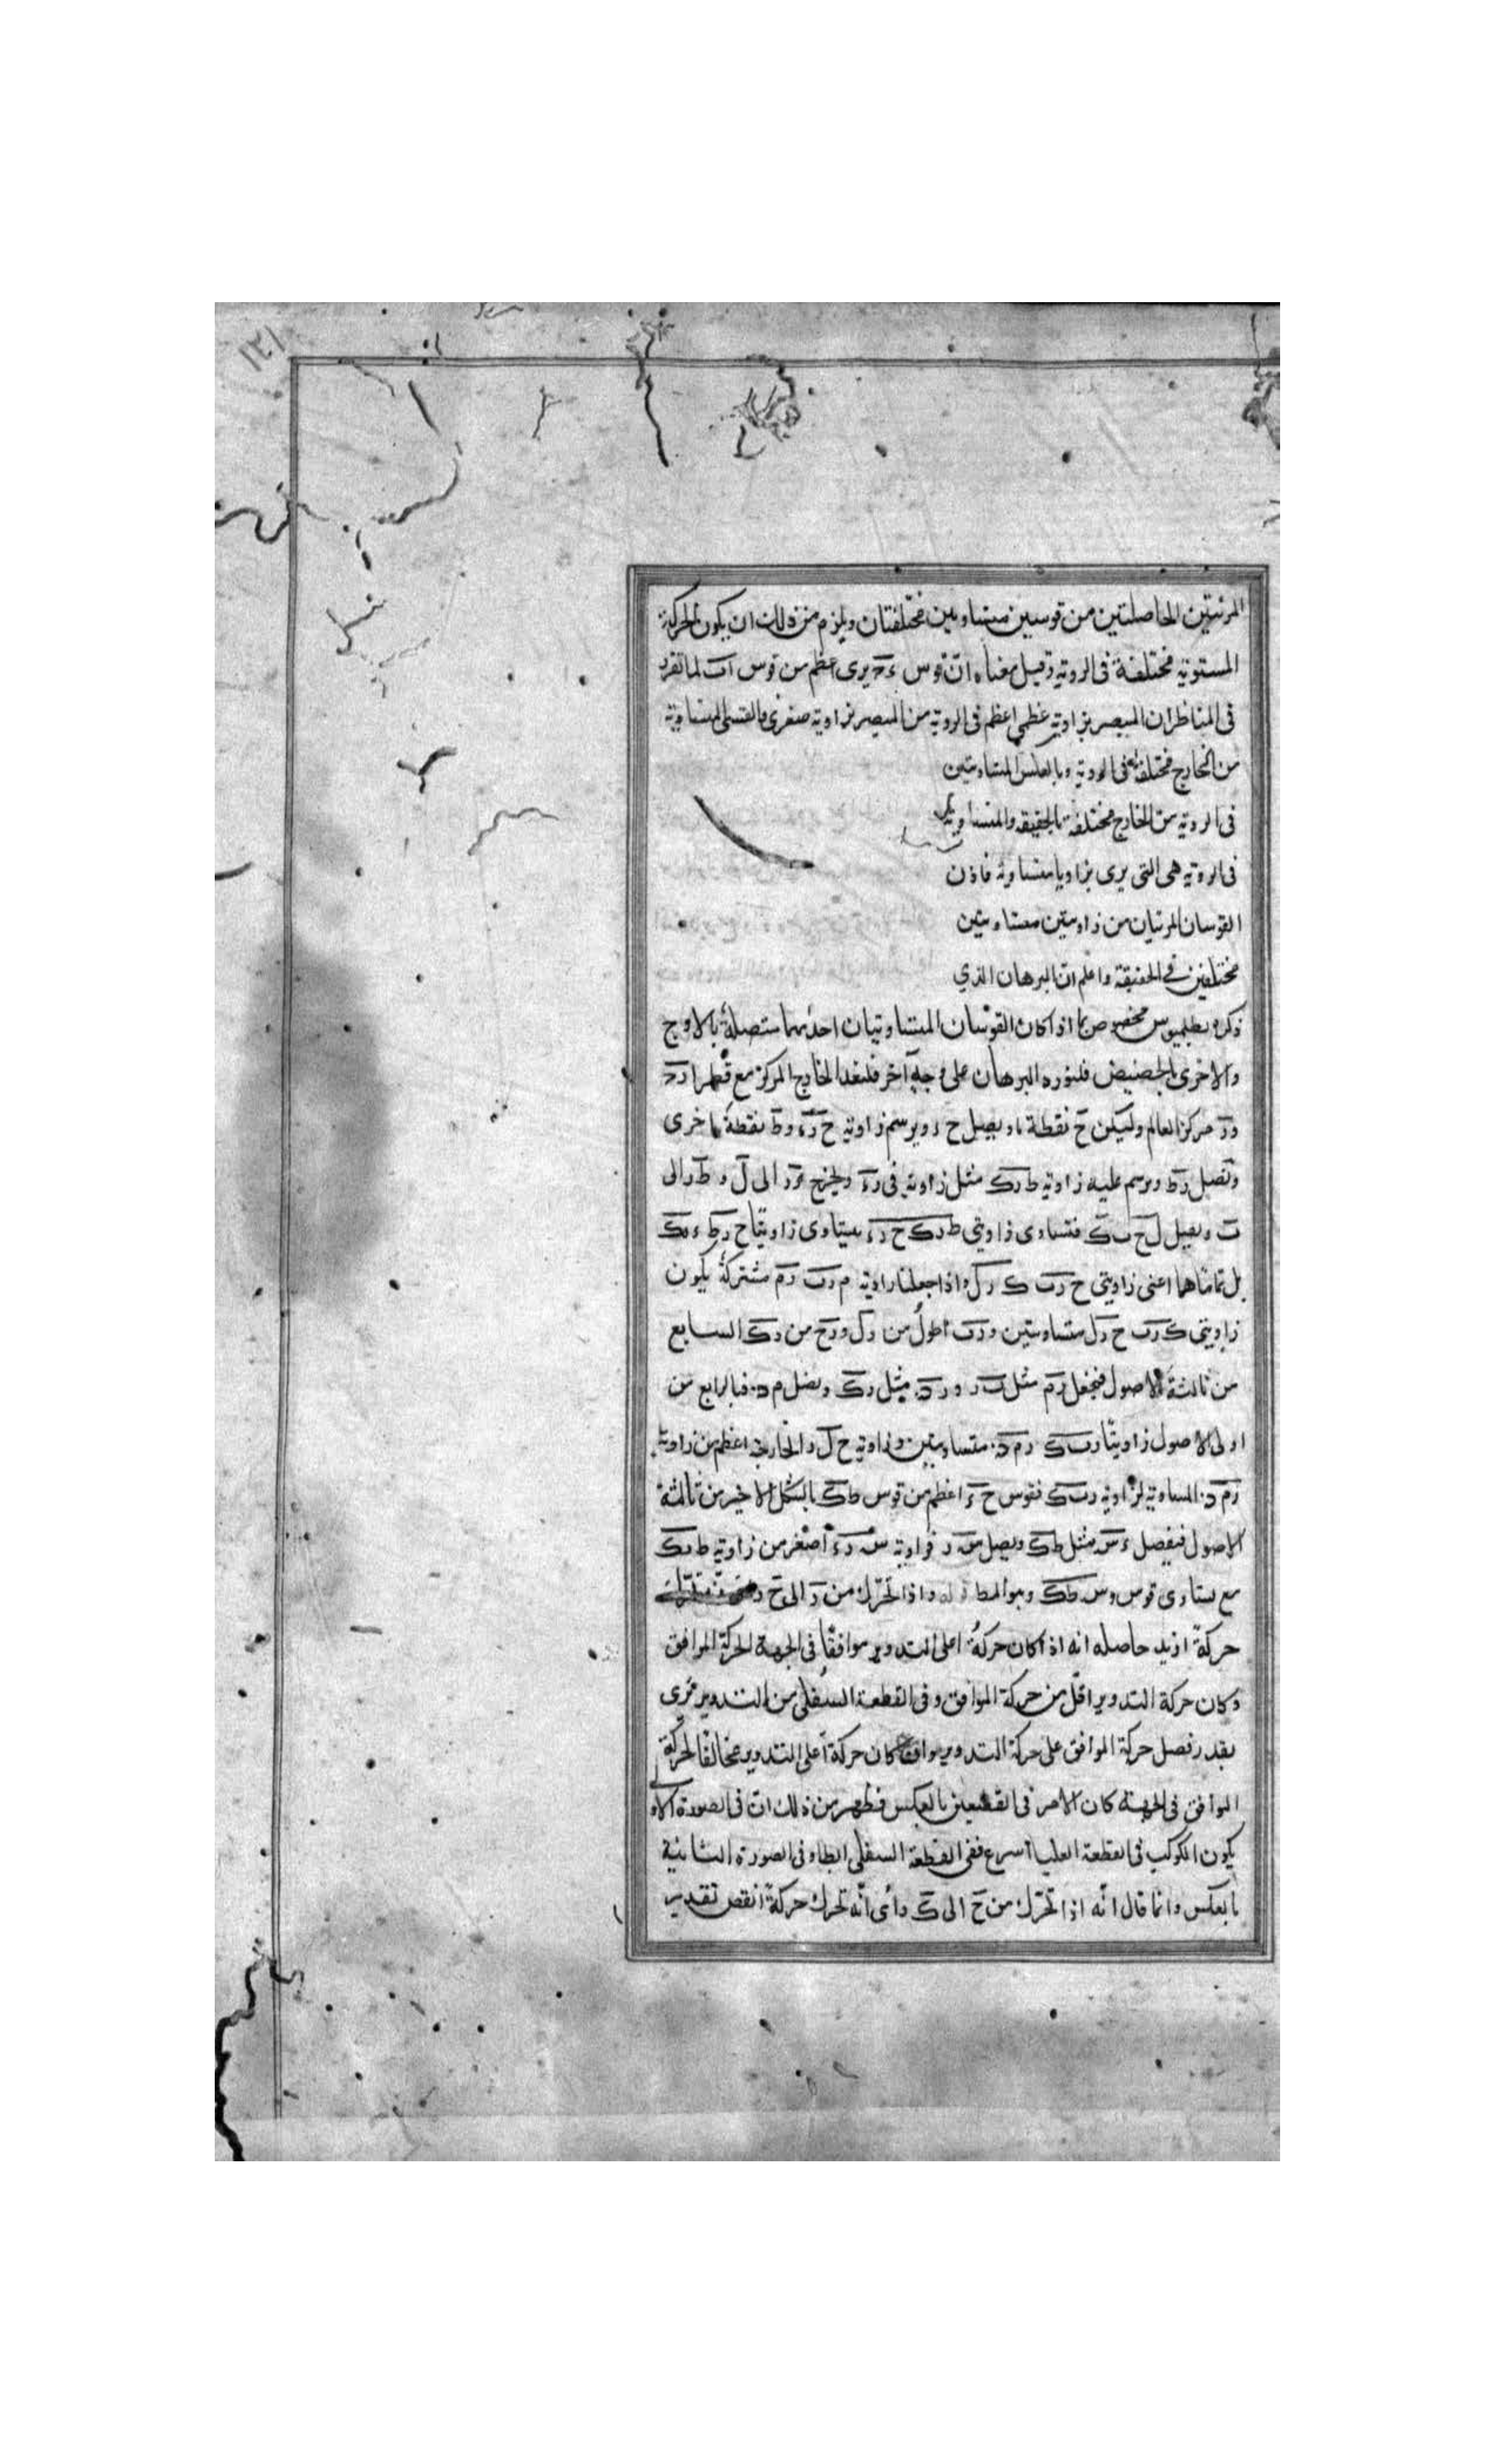 ١٢١
المرئيتين الحاصلتين من قوسين متساويتين مختلفتان ويلزم من ذلك ان يكون الحركة
المستوية مختلفة فى الروية وقيل معناه ان قوس ءح يرى اعظم من قوس اب لما تقرر
فى المناظر ان المبصر بزاوية عظمى اعظم فى الروية من المبصر بزاوية صغرى فالقسى المتساوية
من الخارج مختلفة فى الروية وبالعكس المتساويتين
فى الروية من الخارج مختلفة بالحقيقة والمتساوية
فى الروية هى التى يرى بزوايا متساوية فاذن
القوسان المرئيتان من زاويتين متساويتين
مختلفين فى الحقيقة واعلم ان البرهان الذي
ذكره بطلميوس مخصوص بما اذا كان القوسان المتساويتان احديهما متصلة بالاوج
والاخرى بالحضيض فلنورد البرهان على وجه آخر فلنعد الخارج المركز مع قطر ا د ح
ور مركز العالم وليكن ح نقطة ما ويصل ح ر ويرسم زاوية ح ر ء وط نقطة اخرى
ونصل رط ويرسم عليه زاوية ط رك مثل زاوية فى رء وليخرج ء ر الى ل وط ر الى
ب ويصل ل ح ب ك فتساوى زاويتى ط رك ح رء يستاوى زاويتا ح رط ء رك
بل تماماهما اعنى زاويتى ح رب ك رل واذا جعلنا زاوية م رب رم مشتركة يكون
زاويتى ك رب ح رل متساويتين ورب اطول من رل ورح من رك السابع
من ثالثة الاصول فنجعل رم مثل ب ر ورد مثل رك ونصل م د فبالرابع من
اولى الاصول زاويتا رب ك رم د متساويتين وزاوية ح ل ر الخارجة اعظم من زاوية
رم د المساوية لزاوية رب ك فقوس ح ء اعظم من قوس ط ك بالشكل الاخير من ثالثة
الاصول فنفصل ء س مثل ط ك ويصل س ر فزاوية س ر ء اصغر من زاوية ط رك
مع تساوى قوس وس ط ك وهو المط قوله واذا تحرك من ر الى ح
حركة ازيد حاصله انه اذا كان حركة اعلى التدوير موافقا فى الجهة الحركة الموافق
وكان حركة التدوير اقل من حركة الموافق وفى القطعة السفلى من التدوير فيرى
بقدر فصل حركة الموافق على حركة التدوير وان كان حركة اعلى التدوير مخالفا لحركة
الموافق فى الجهة كان الامر فى القطعتين بالعكس فظهر من ذلك ان فى الصورة الاولى
يكون الكوكب فى القطعة العليا اسرع ففى القطعة السفلى ابطا وفى الصورة الثانية
بالعكس وانما قال انه اذا تحرك من ح الى ك راى انه تحرك حركة انقص تقدير